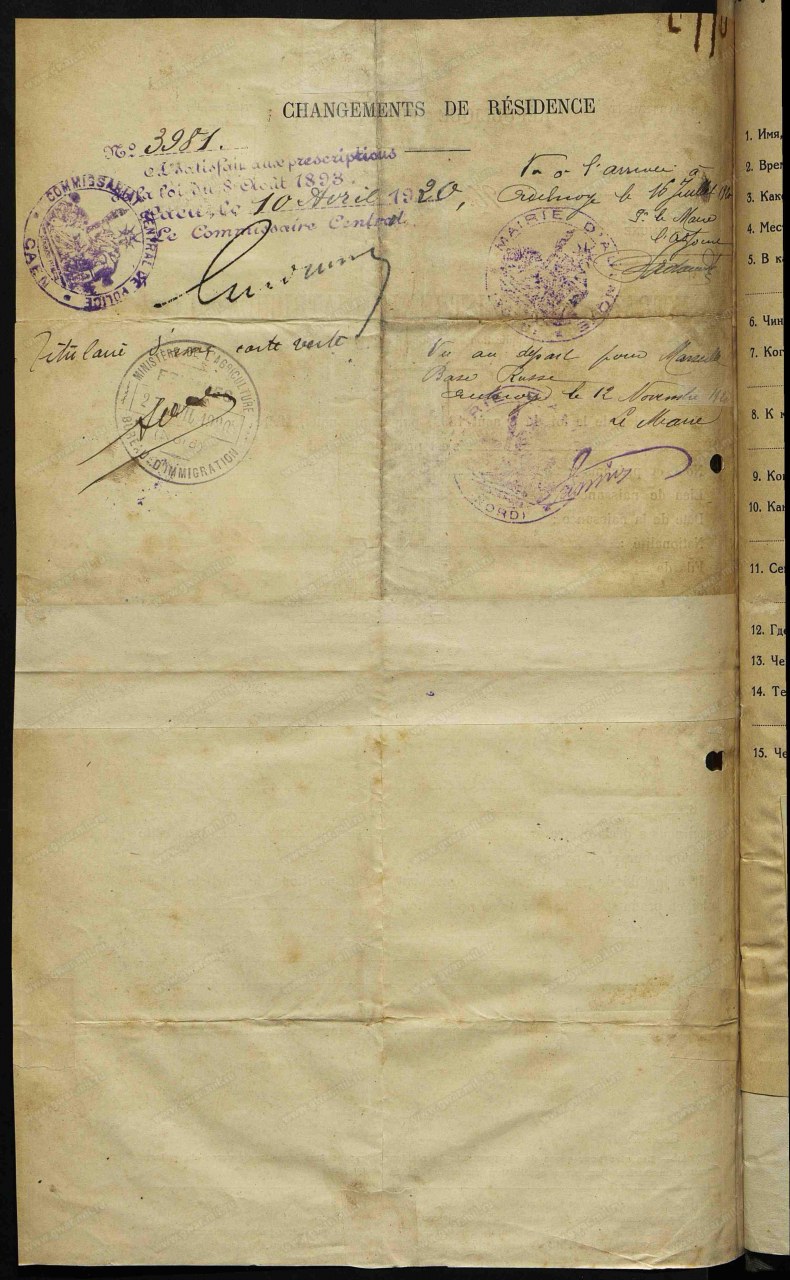 CHANGEMENTS DE RÉSIDENCE
No 3981.
a Satisfait aux prescriptions
la loi du 8 Août 1893.
Caen, le 10 Avril 1920,
Le Commissaire Central
COMMISSARIAT CENTRAL DE POLICE
CAEN
Titulaire d'une carte verte
MINISTÈRE DE L'AGRICULTURE
BUREAU D'IMMIGRATION
Vu à l'arrivée à
le 16 Juillet
Pr le Maire
l'adjoint
MAIRIE D'AULNOYE
Vu au départ pour Marseille
Base Russe
le 12 Novembre
Le Maire
MAIRIE
(NORD)
1. Имя,
2. Врем
3. Како
4. Мест
5. В ка
6. Чин
7. Ког
8. К к
9. Ког
10. Как
11. Се
12. Где
13. Че
14. Те
15. Че